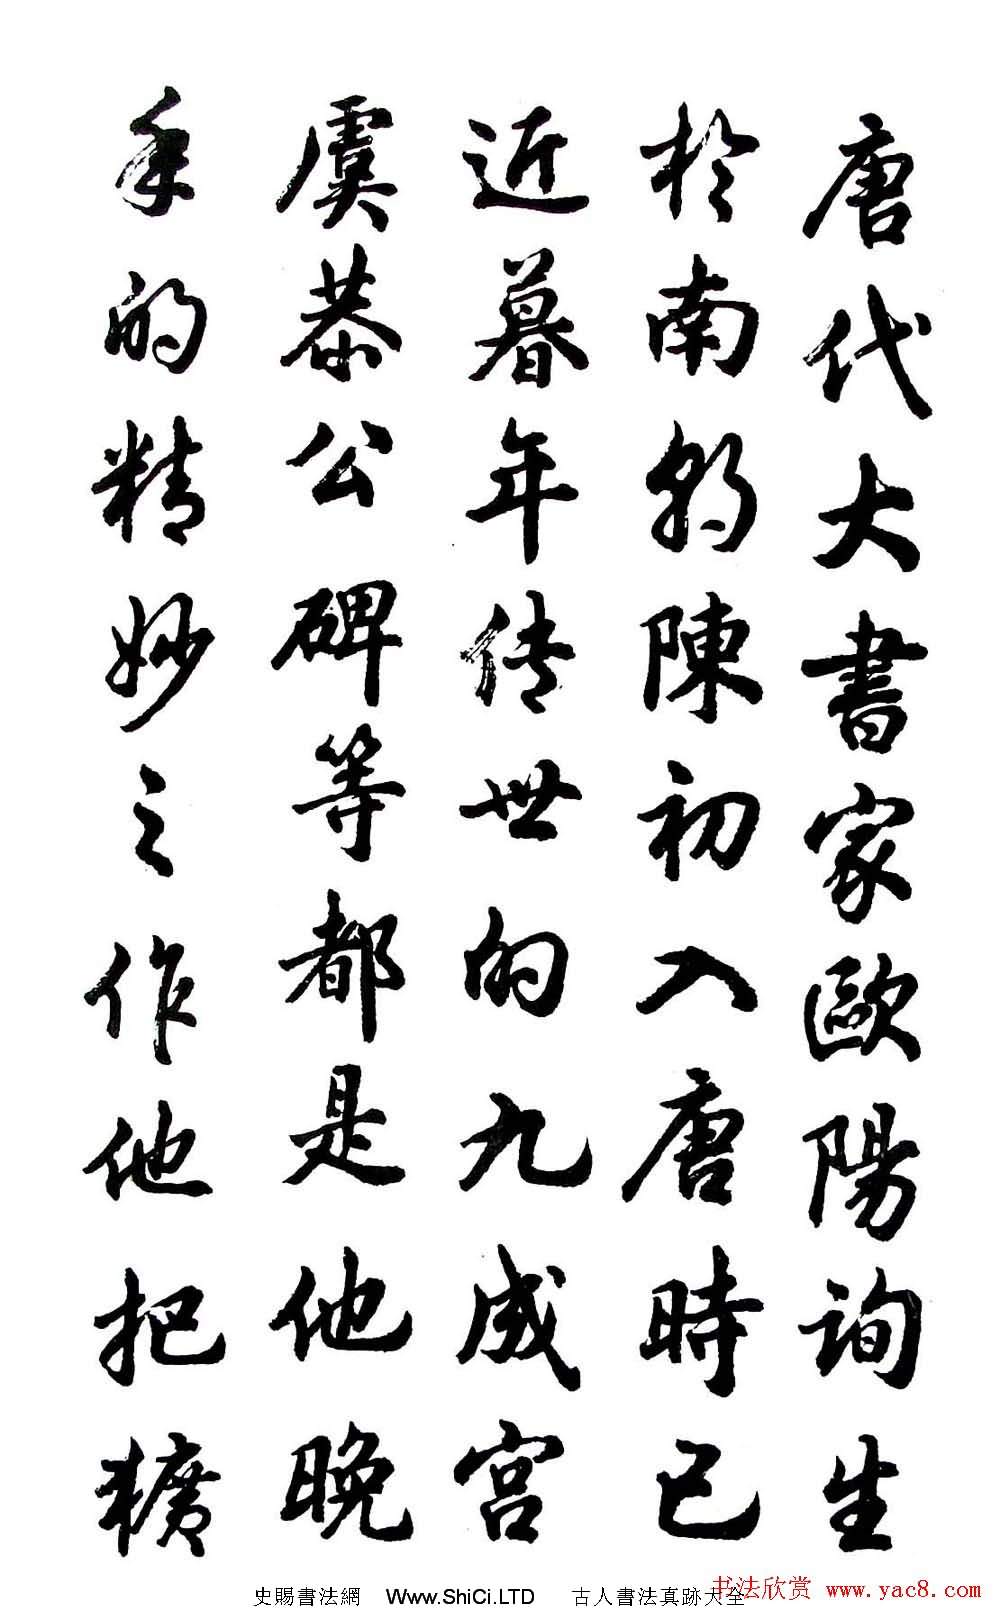 唐代大書家歐陽詢生
於南朝陳初入唐時已
近暮年传世的九成宫
虞恭公碑等都是他晚
年的精妙之作他把獷
史賜書法網 Www.ShiCi.LTD 古人書法真跡大全
书法欣赏 www.yac8.com